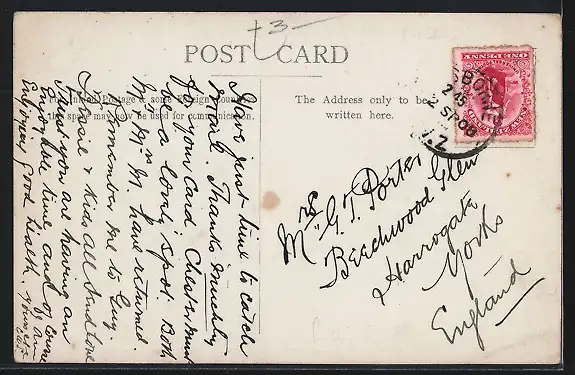 +3-
POST CARD
For Inland Postage & some Foreign Countries
this space may now be used for communication.
The Address only to be
written here.
ONE PENNY
2 15
2 SP 08
N.Z.
Have just time to catch
mail. Thanks muchly
for your card Chesterhunt
looks a lovely spot. Both
Mr & Mrs M. have returned.
Remember me to Guy
Flossie & Kids all send love
Trust you are having an
enjoyable time and of course
Enjoying good health.
Mrs G. T. Porter
Beechwood Glen
Harrogate
Yorks
England